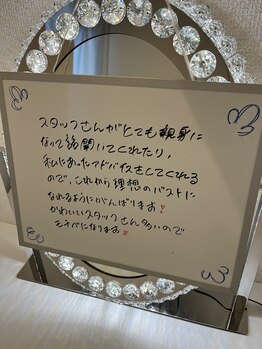 スタッフさんがとても親身に
なって話聞いてくれたり、
私にあったアドバイスをしてくれる
ので、これから理想のバストに
なれるようにがんばります!
かわいいスタッフさん多いので
モチベになります!